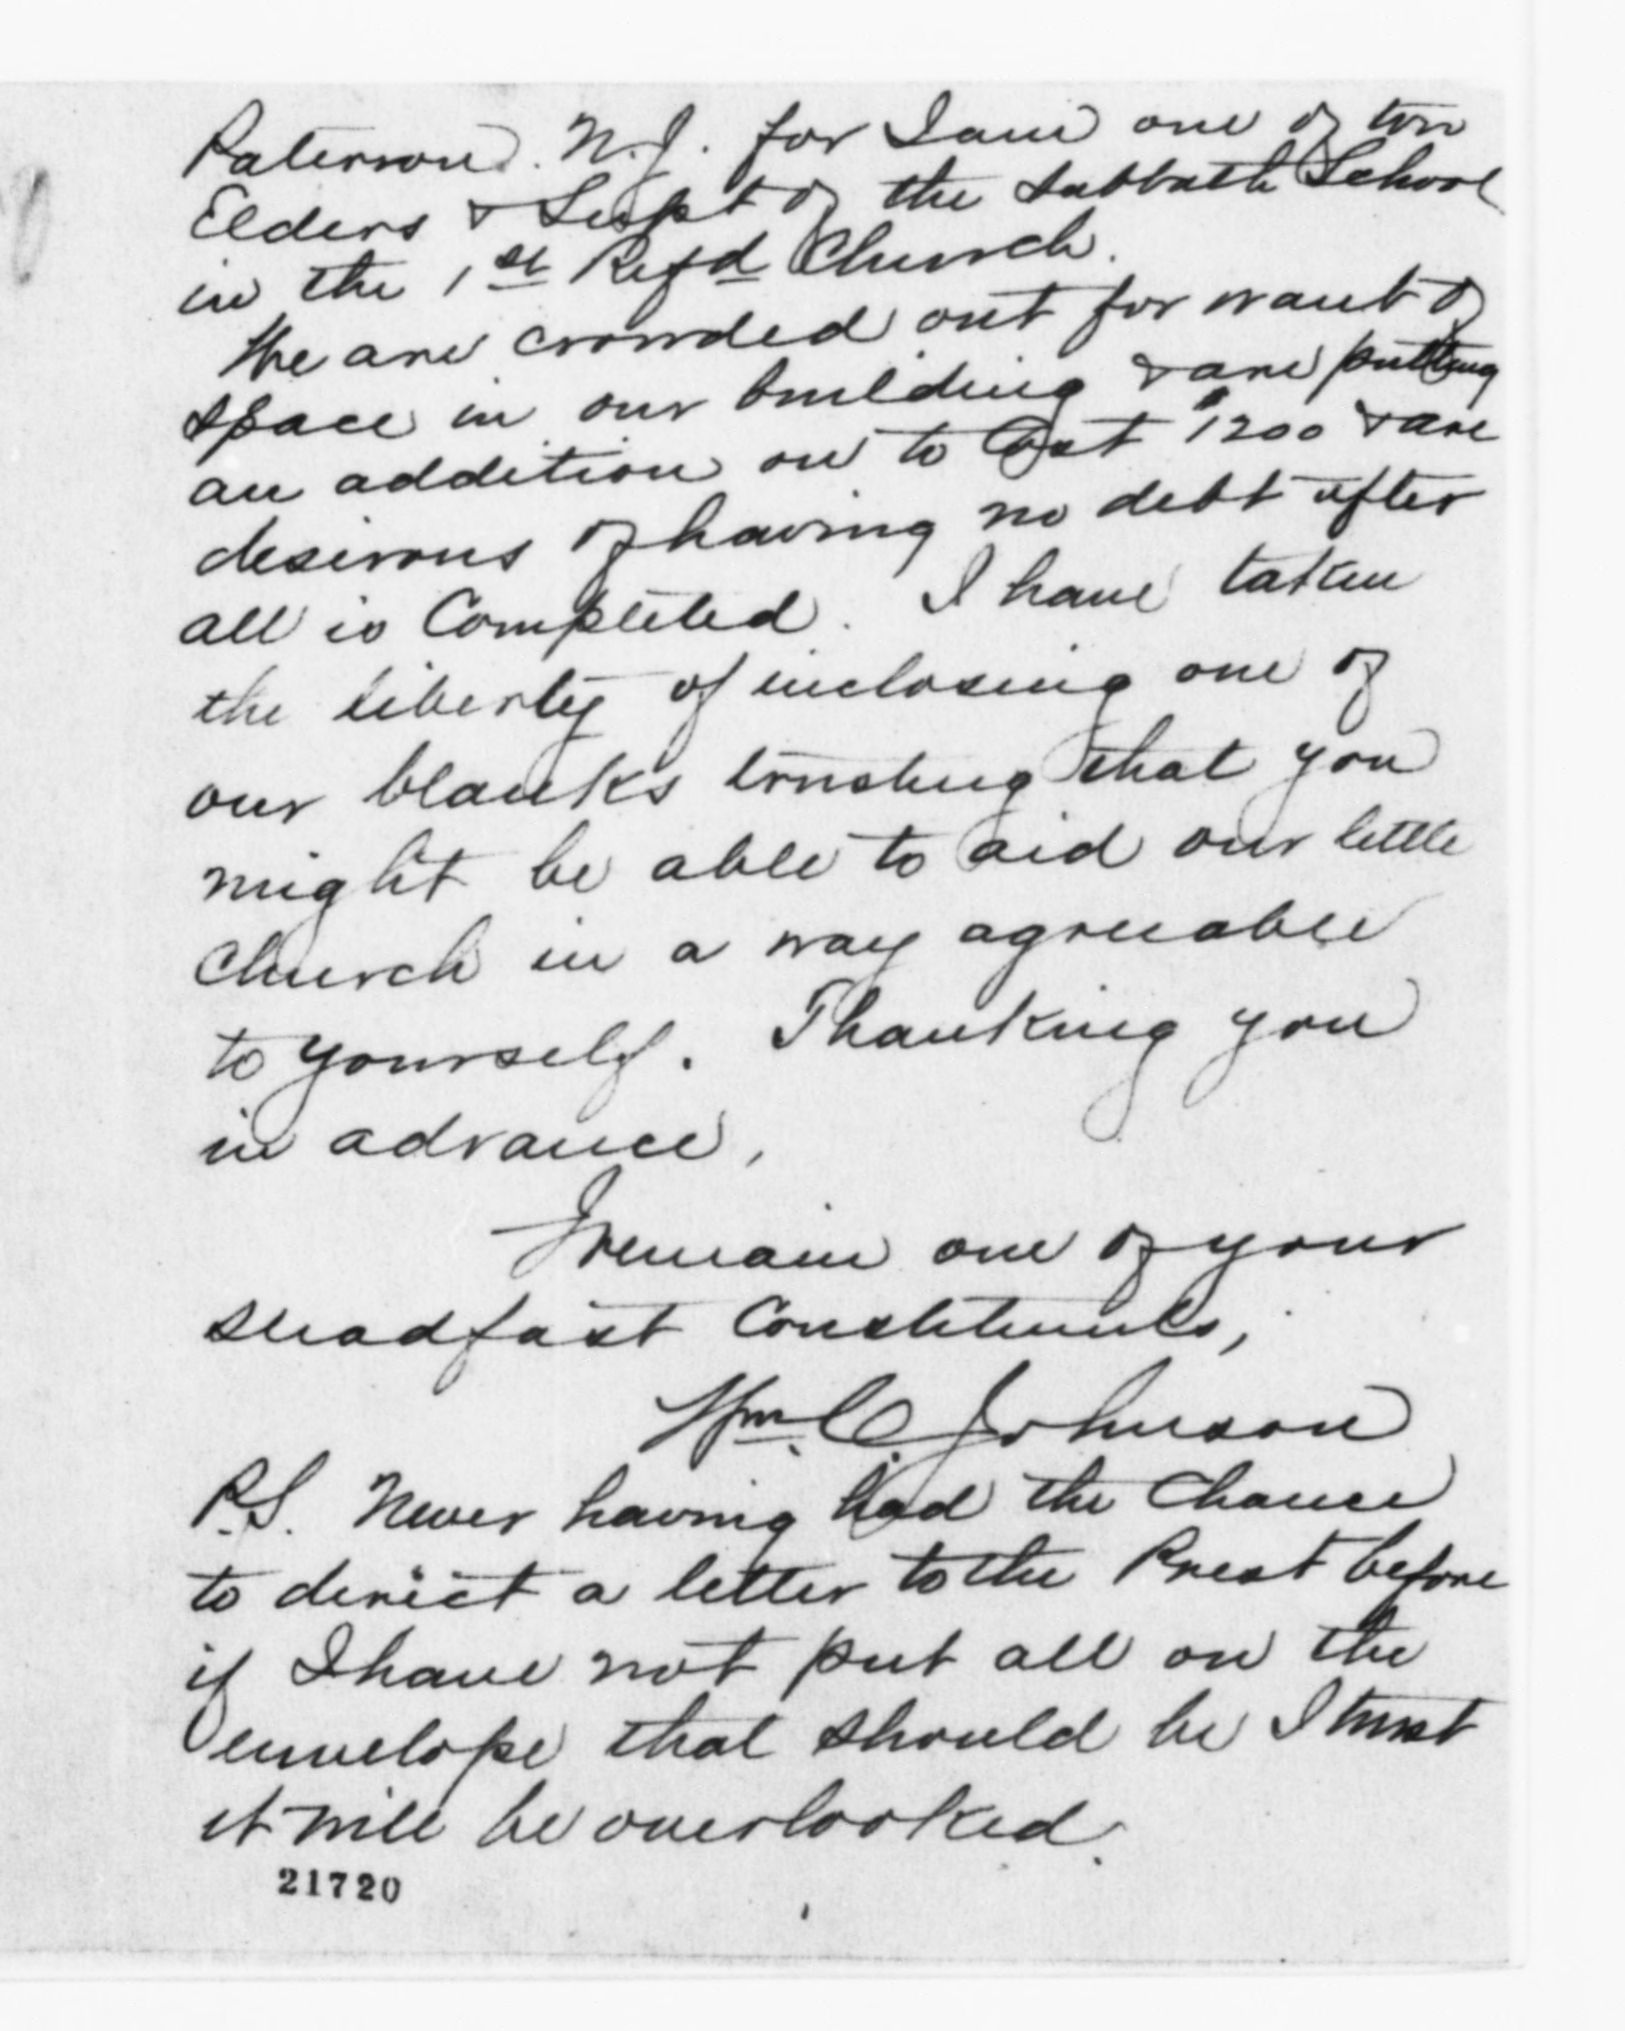 Paterson. N.J. for I am one of two
Elders & Supt of the Sabbath School
in the 1st Refd Church.
We are crowded out for want of
space in our building & are putting
an addition on to Cost $1200 & are
desirous of having no debt after
all is Completed. I have taken
the liberty of inclosing one of
our blanks trusting that you
might be able to aid our little
Church in a way agreeable
to yourself. Thanking you
in advance,
I remain one of your
steadfast Constituents,
Wm. C. Johnson
P.S. Never having had the Chance
to direct a letter to the Prest before
if I have not put all on the
envelope that should be I trust
it will be overlooked.
21720